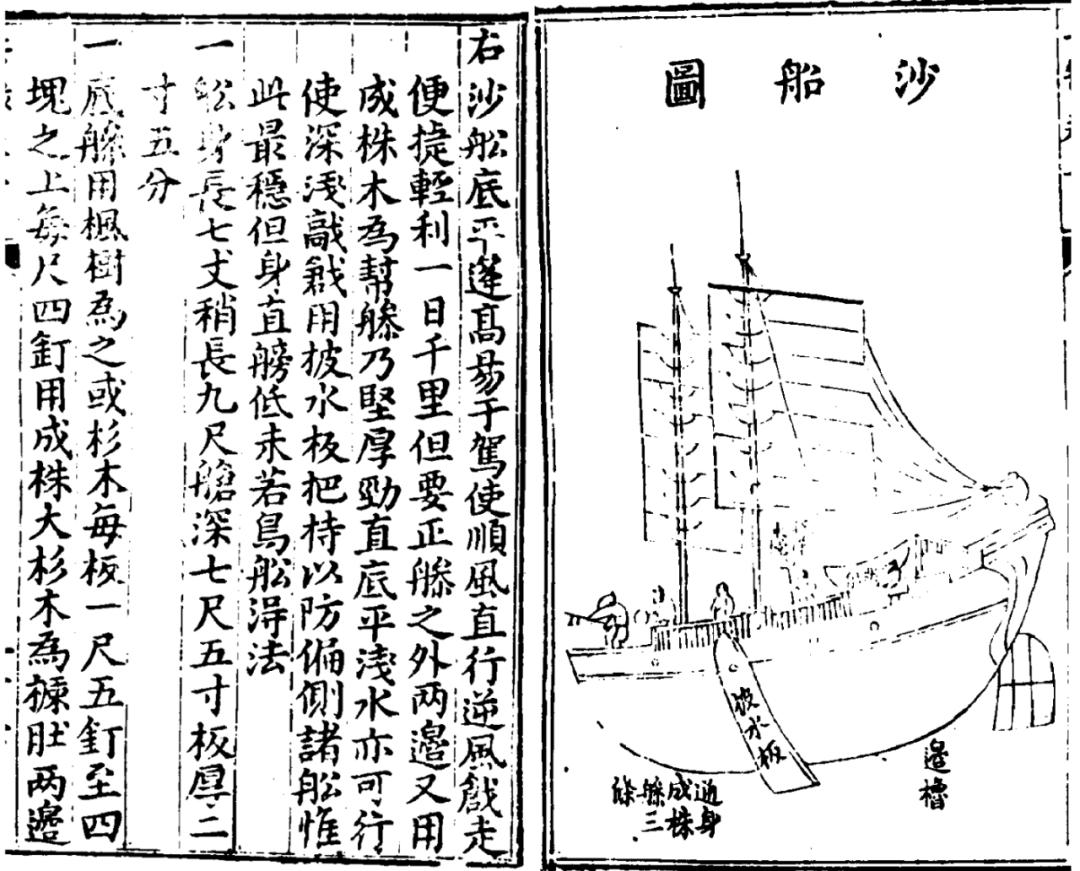 沙船圖
披水板
邉櫓
通身
成株
艜三
條
右沙舩底平蓬髙易于駕使順風直行逆風戧走
便捷輕利一日千里但要正艜之外两邉又用
成株木為幫艜乃堅厚勁直底平淺水亦可行
使深淺敲戧用披水板把持以防偏側諸舩惟
此最穩但身直艕低未若鳥舩淂法
一舩身長七丈稍長九尺艙深七尺五寸板厚二
寸五分
一底艜用楓樹為之或杉木每板一尺五釘至四
塊之上每尺四釘用成株大杉木為𣚦肚两邉